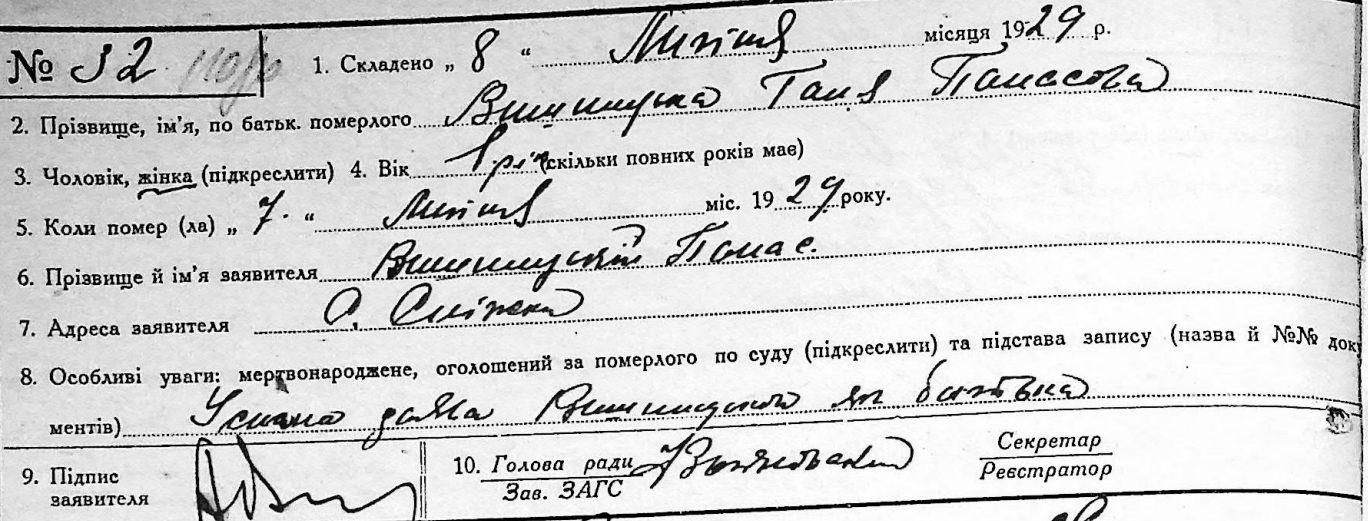 № 32 1. Складено „ 8 “ Липня місяця 1929 р.
2. Прізвище, ім’я, по батьк. померлого Галя Панасова
3. Чоловік, жінка (підкреслити) 4. Вік 1 рік (скільки повних років має)
5. Коли помер (ла) „ 7. “ Липня міс. 1929 року.
6. Прізвище й ім’я заявителя Панас.
7. Адреса заявителя С. Сніжна
8. Особливі уваги: мертвонароджене, оголошений за померлого по суду (підкреслити) та підстава запису (назва й №№ доку
ментів) Усная заява як батька
9. Підпис заявителя 10. Голова ради Секретар
Зав. ЗАГС Реєстратор